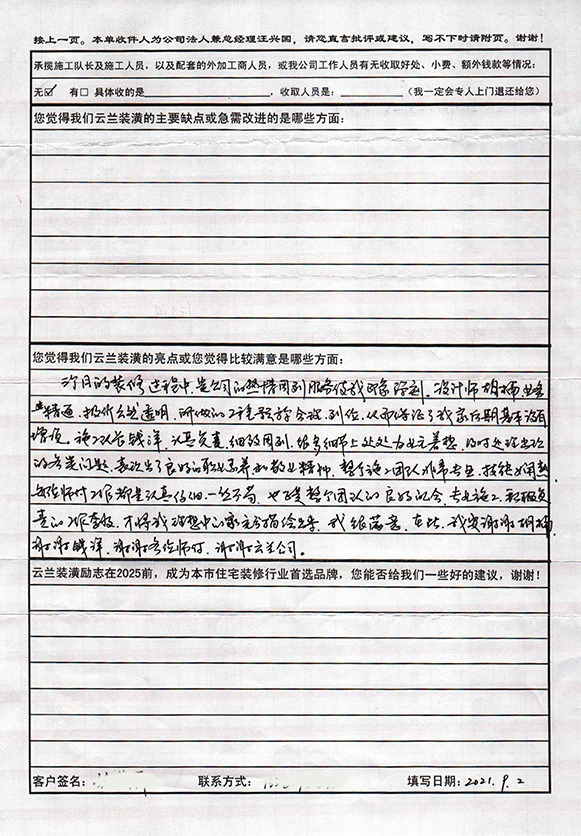 接上一页。本单收件人为公司法人兼总经理汪兴国,请您直言批评或建议,写不下时请附页。谢谢!
承揽施工队长及施工人员,以及配套的外加工商人员,或我公司工作人员有无收取好处、小费、额外钱款等情况:
无☑ 有□ 具体收的是____________,收取人员是:________(我一定会专人上门退还给您)
您觉得我们云兰装潢的主要缺点或急需改进的是哪些方面:
您觉得我们云兰装潢的亮点或您觉得比较满意是哪些方面:
个月的装修过程中,贵公司的热情周到服务使我印象深刻。设计师胡楠业务
精通,报价公开透明,所做的工程预算合理、到位,从而保证了我家后期基本没有
增项。施工队长钱洋,认真负责,细致周到,很多细节上处处为业主着想,及时处理出现
的各类问题,表现出了良好的职业素养和敬业精神。整个施工团队非常专业,技能娴熟
每位师傅工作都是认真仔细、一丝不苟。也正是整个团队的良好配合,专业施工,积极负
责的工作态度,才将我理想中的家完美描绘出来。我很满意,在此,我要谢谢胡楠
谢谢钱洋,谢谢各位师傅,谢谢云兰公司。
云兰装潢励志在2025前,成为本市住宅装修行业首选品牌,您能否给我们一些好的建议,谢谢!
客户签名: 联系方式: 填写日期:2021.9.2